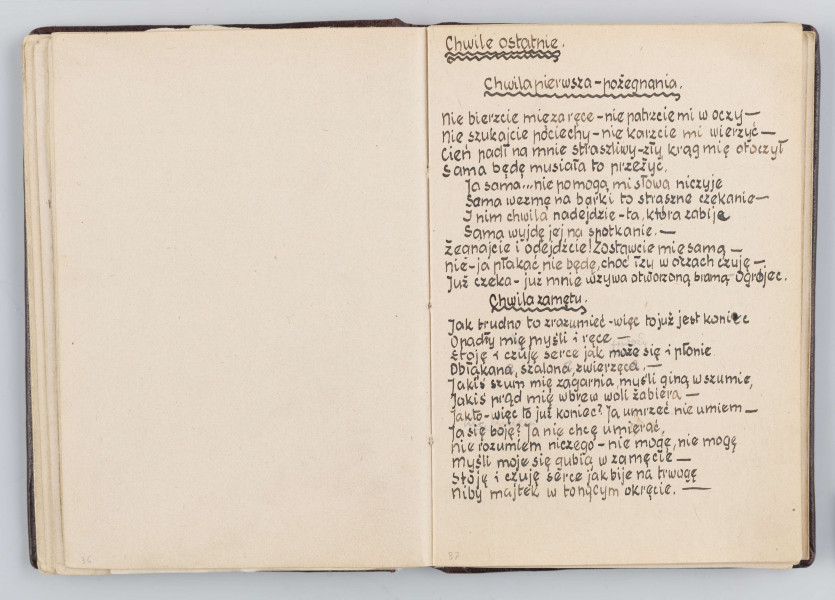 Chwile ostatnie.
Chwila pierwsza – pożegnania.
Nie bierzcie mię za ręce – nie patrzcie mi w oczy —
Nie szukajcie pociechy – nie każcie mi wierzyć —
Cień padł na mnie straszliwy – zły krąg mię otoczył
Sama będę musiała to przeżyć.
Ja sama... nie pomogą mi słowa niczyje
Sama wezmę na barki to straszne czekanie —
I nim chwila nadejdzie – ta, która zabije
Sama wyjdę jej na spotkanie. —
Żegnajcie i odejdźcie! Zostawcie mię samą —
nie – ja płakać nie będę, choć łzy w oczach czuję —
Już czeka – już mnie wzywa otworzoną bramą Ogrójec.
Chwila zamętu.
Jak trudno to zrozumieć – więc to już jest koniec
Opadły mię myśli i ręce —
Stoję i czuję serce jak może się i płonie
Obłąkana, szalona, zwierzęca. —
Jakiś szum mię zagarnia, myśli giną w szumie,
Jakiś prąd mię wbrew woli zabiera —
Jakto – więc to już koniec? Ja umrzeć nie umiem —
Ja się boję? Ja nie chcę umierać,
nie rozumiem niczego – nie mogę, nie mogę
Myśli moje się gubią w zamęcie —
Stoję i czuję serce jak bije na trwogę
Niby majtek w tonącym okręcie. —
36
37